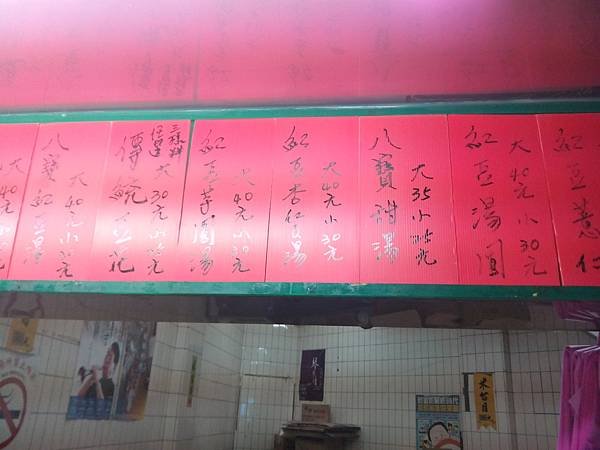 紅豆薏仁
紅豆湯圓
大40元小30元
八寶甜湯
大35小25元
紅豆杏仁湯
大40元小30元
紅豆芋圓湯
大40元小30元
傳統豆花
三種料
任選
大30元小25元
八寶紅豆湯
大40元小30元
大40元